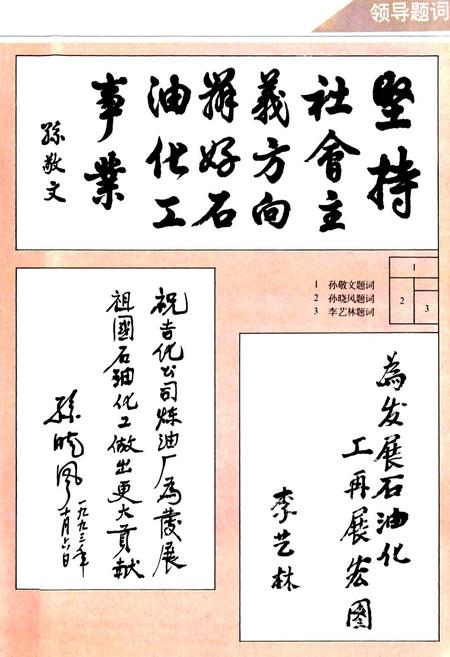 领导题词
堅持
社會主
義方向
辦好石
油化工
事業
孫敬文
1 孙敬文题词
2 孙晓风题词
3 李艺林题词
1
2
3
祝吉化公司炼油厂為發展
祖國石油化工做出更大貢献
孫晓风
一九九三年
十月六日
為发展石油化
工再展宏图
李艺林